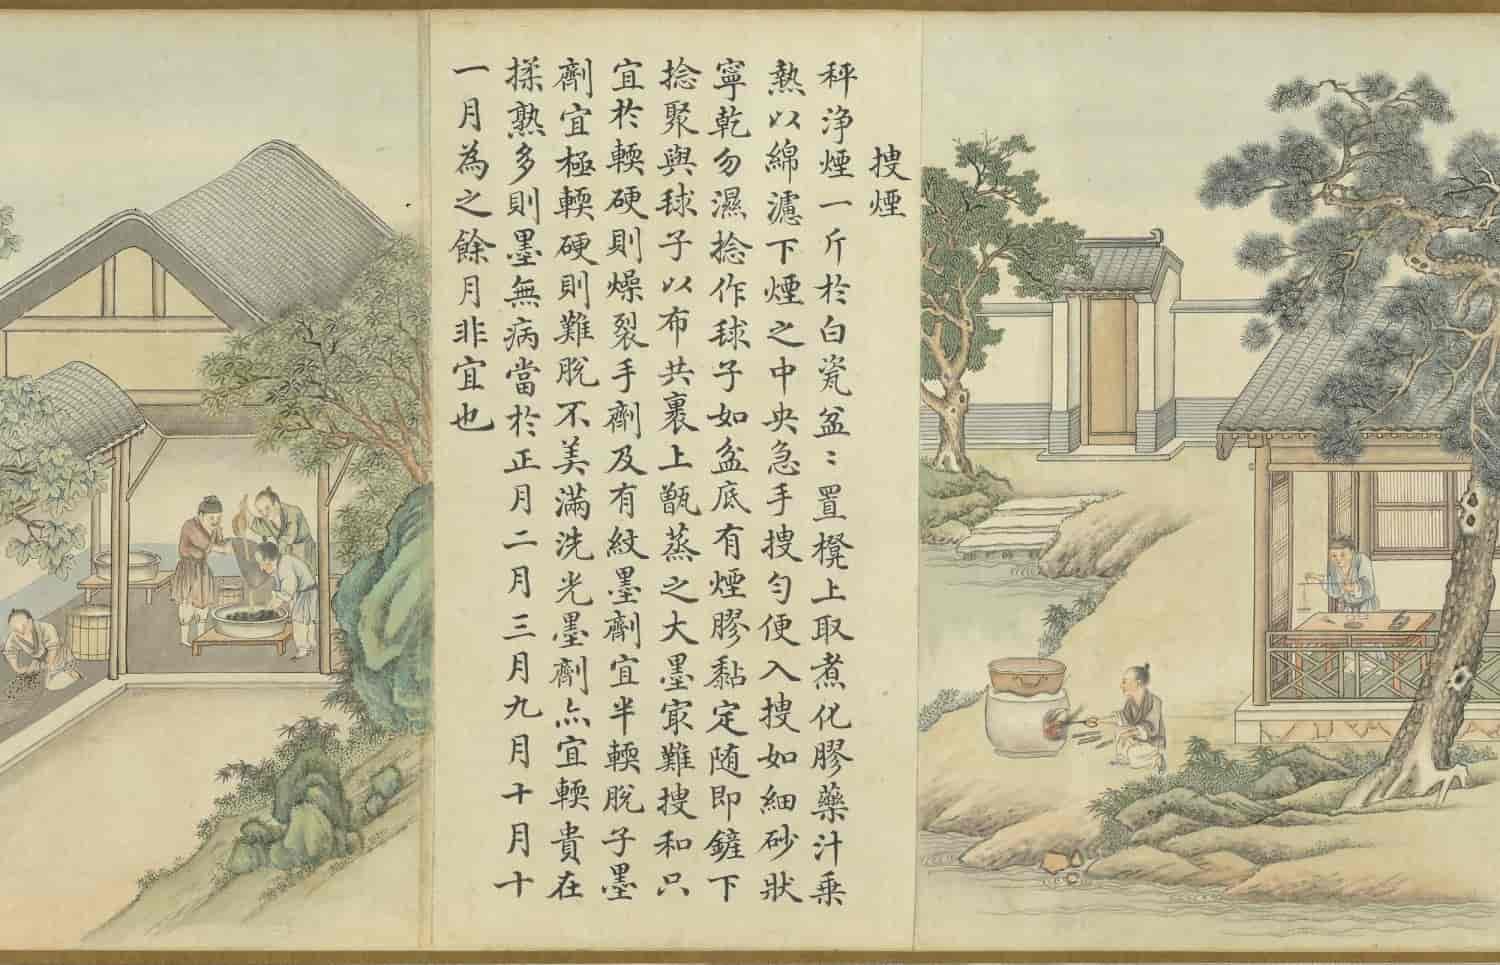 搜煙
秤淨煙一斤於白瓷盆〻置櫈上取煮化膠藥汁乗
熱以綿濾下煙之中央急手搜勻便入搜如細砂狀
寧乾勿濕捻作球子如盆底有煙膠黏定随即鏟下
捻聚與球子以布共裹上甑蒸之大墨冣難搜和只
宜於輭硬則燥裂手劑及有紋墨劑宜半輭脫子墨
劑宜極輭硬則難脫不美滿洗光墨劑亦宜輭貴在
揉熟多則墨無病當於正月二月三月九月十月十
一月為之餘月非宜也